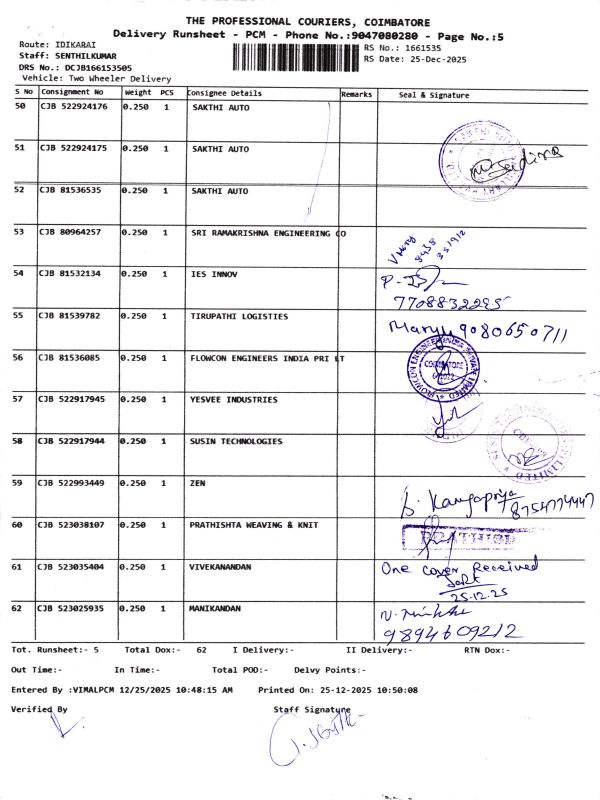 THE PROFESSIONAL COURIERS, COIMBATORE
Delivery Runsheet - PCM - Phone No.:9047080280 - Page No.:5
Route: IDIKARAI
RS No.: 1661535
Staff: SENTHILKUMAR
RS Date: 25-Dec-2025
DRS No.: DCJB166153505
Vehicle: Two Wheeler Delivery
S No Consignment No Weight PCS Consignee Details Remarks Seal & Signature
50 CJB 522924176 0.250 1 SAKTHI AUTO
51 CJB 522924175 0.250 1 SAKTHI AUTO
52 CJB 81536535 0.250 1 SAKTHI AUTO
53 CJB 80964257 0.250 1 SRI RAMAKRISHNA ENGINEERING CO
54 CJB 81532134 0.250 1 IES INNOV
7708832295
55 CJB 81539782 0.250 1 TIRUPATHI LOGISTIES 9080650711
56 CJB 81536085 0.250 1 FLOWCON ENGINEERS INDIA PRI LT
COIMBATORE
57 CJB 522917945 0.250 1 YESVEE INDUSTRIES
58 CJB 522917944 0.250 1 SUSIN TECHNOLOGIES
59 CJB 522993449 0.250 1 ZEN
60 CJB 523038107 0.250 1 PRATHISHTA WEAVING & KNIT
61 CJB 523035404 0.250 1 VIVEKANANDAN One cover Received
25.12.25
62 CJB 523025935 0.250 1 MANIKANDAN
9894609212
Tot. Runsheet:- 5 Total Dox:- 62 I Delivery:- II Delivery:- RTN Dox:-
Out Time:- In Time:- Total POD:- Delvy Points:-
Entered By :VIMALPCM 12/25/2025 10:48:15 AM Printed On: 25-12-2025 10:50:08
Verified By Staff Signature